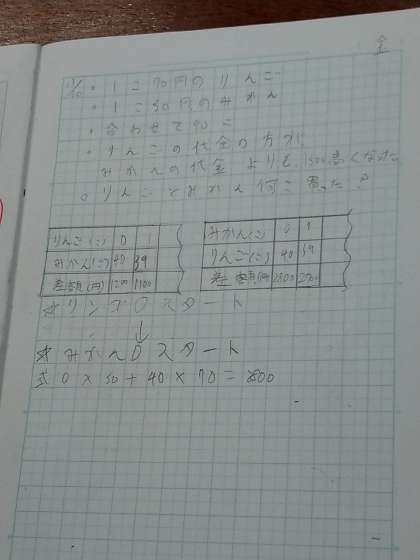 金
11/10 ・1こ70円のりんご
・1こ30円のみかん
・合わせて40こ
・りんごの代金の方が
みかんの代金よりも1500高くなった
○りんごとみかん何こ買った?
りんご(こ) 0 1
みかん(こ) 40 39
差額(円) 1200 1100
みかん(こ) 0 1
りんご(こ) 40 39
差額(円) 2800 2700
☆リンゴ0スタート
↓
☆みかん0スタート
式 0×30+40×70=2800